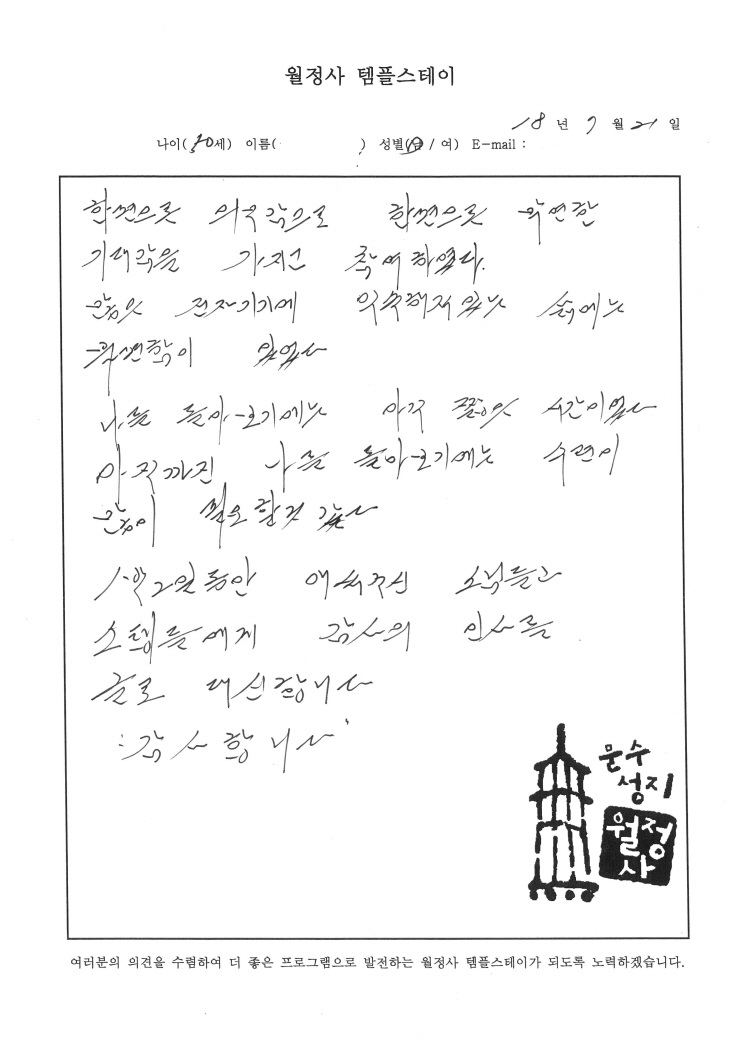 월정사 템플스테이
18 년 7 월 21 일
나이( 30세) 이름( ) 성별(남 / 여) E-mail :
한편으론 의무감으로 한편으론 막연한
기대감을 가지고 참여하였다.
많은 전자기기에 익숙해져 있는 삶에는
불편함이 있었다
나를 돌아보기에는 아주 짧은 시간이었다
아직까진 나를 돌아보기에는 수련이
많이 필요할것 같다
1박2일동안 애써주신 스님들과
스탭들에게 감사의 인사를
글로 대신합니다
'감사합니다'
문수
성지
월정
사
여러분의 의견을 수렴하여 더 좋은 프로그램으로 발전하는 월정사 템플스테이가 되도록 노력하겠습니다.